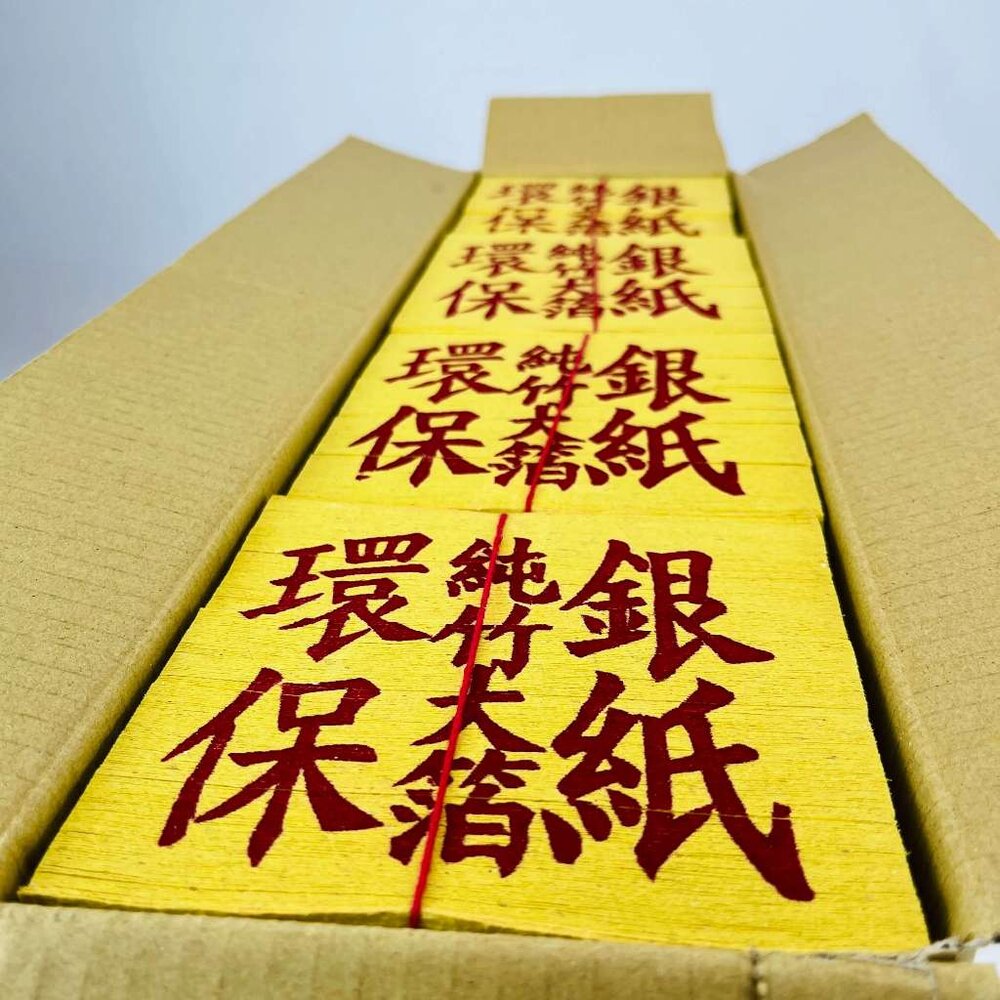 環保
純竹大箔
銀紙
環保
純竹大箔
銀紙
環保
純竹大箔
銀紙
環保
純竹大箔
銀紙